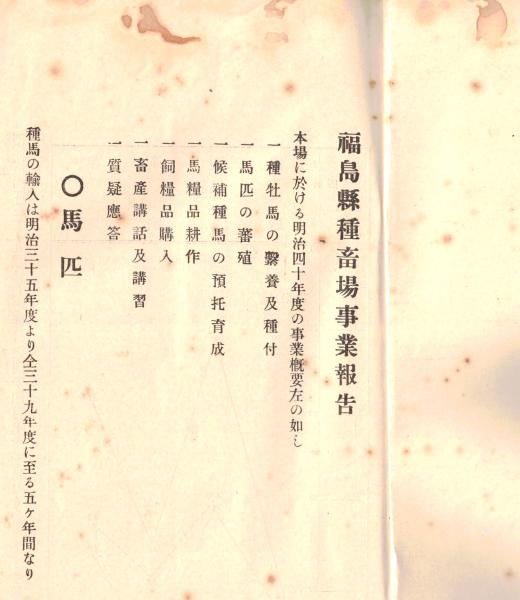 福島縣種畜場事業報告
本場に於ける明治四十年度の事業概要左の如し
一種牡馬の繋養及種付
一馬匹の蕃殖
一候補種馬の預托育成
一馬糧品耕作
一飼糧品購入
一畜產講話及講習
一質疑應答
〇馬匹
種馬の輸入は明治三十五年度より仝三十九年度に至る五ケ年間なり